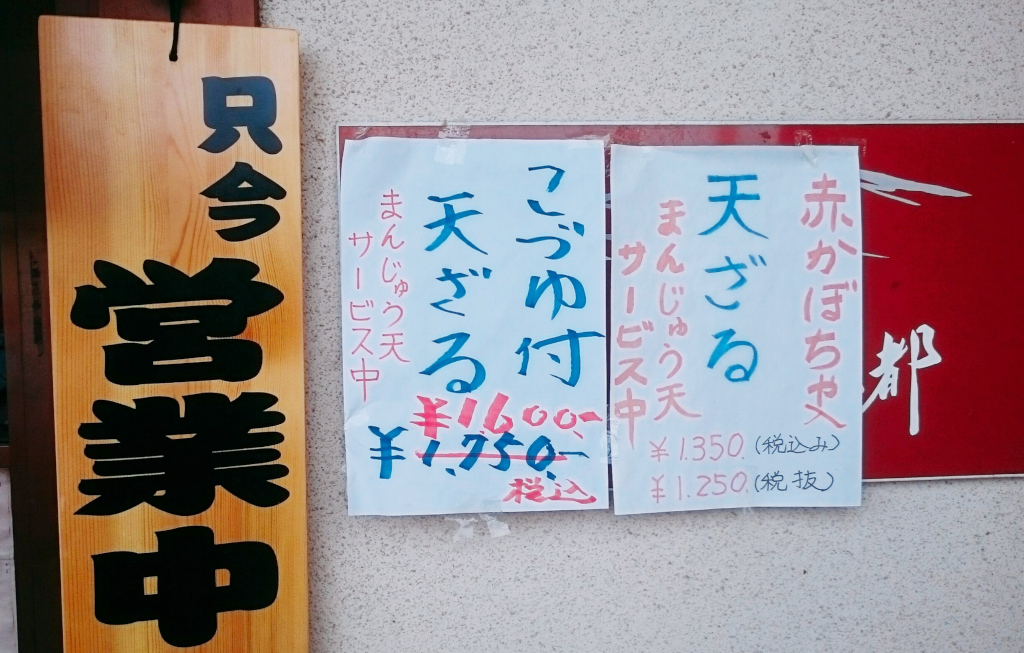 只今
営業中
こづゆ付
天ざる
¥1600-
¥1,750.-
税込
まんじゅう天
サービス中
赤かぼちゃ入
天ざる
まんじゅう天
サービス中
¥1.350.(税込み)
¥1.250.(税抜)
都